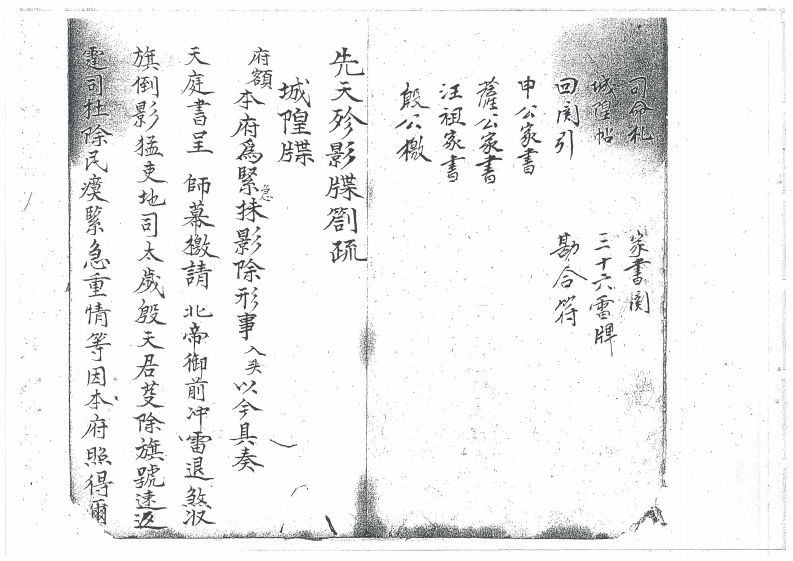 司命札
城隍帖
回関引
申公家書
薩公家書
汪祖家書
殷公檄
家書関
三十六雷牌
勘合符
先天殄影牒劄疏
城隍牒
府額 本府為緊急抹影除形事入夹以今具奏
天庭書呈 師幕檄請 北帝御前冲雷退煞收
旗倒影猛吏地司太歲殷天君芟除旗號速返
靈司杜除民瘼緊急重情等因本府照得爾